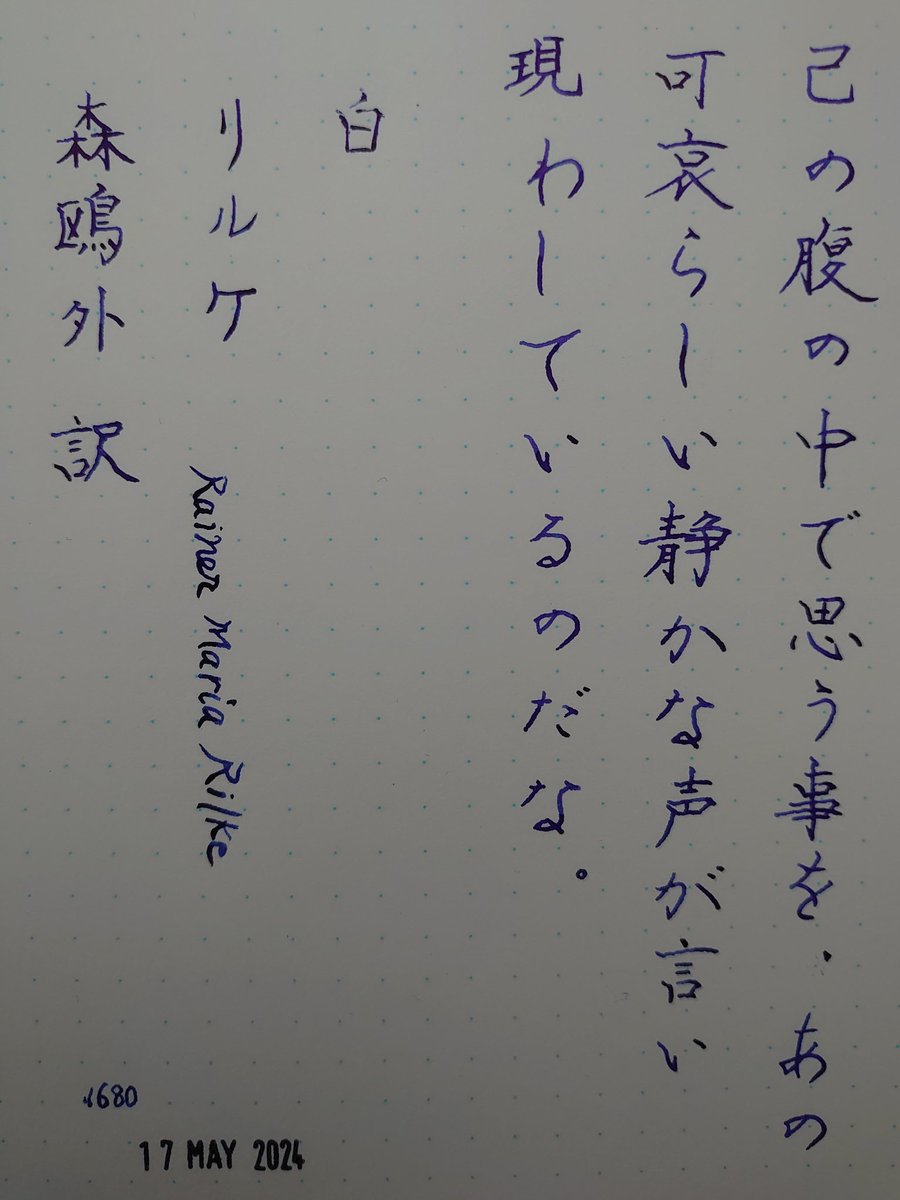 己の腹の中で思う事を、あの
可哀らしい静かな声が言い
現わしているのだな。
白
リルケ Rainer Maria Rilke
森鴎外 訳
1680
17 MAY 2024